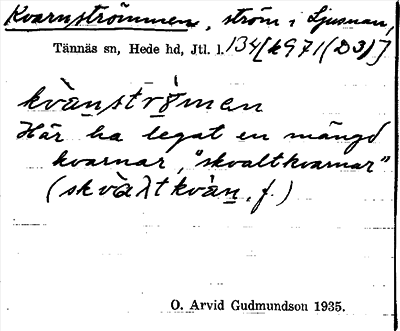 Kvarnströmmen, ström i Ljusnan,
Tännäs sn, Hede hd, Jtl. l. 134[k971(D3)]
kvànströ́men
Här ha legat en mängd
kvarnar, "skvaltkvarnar"
(skvàltkvàn, f.)
O. Arvid Gudmundson 1935.